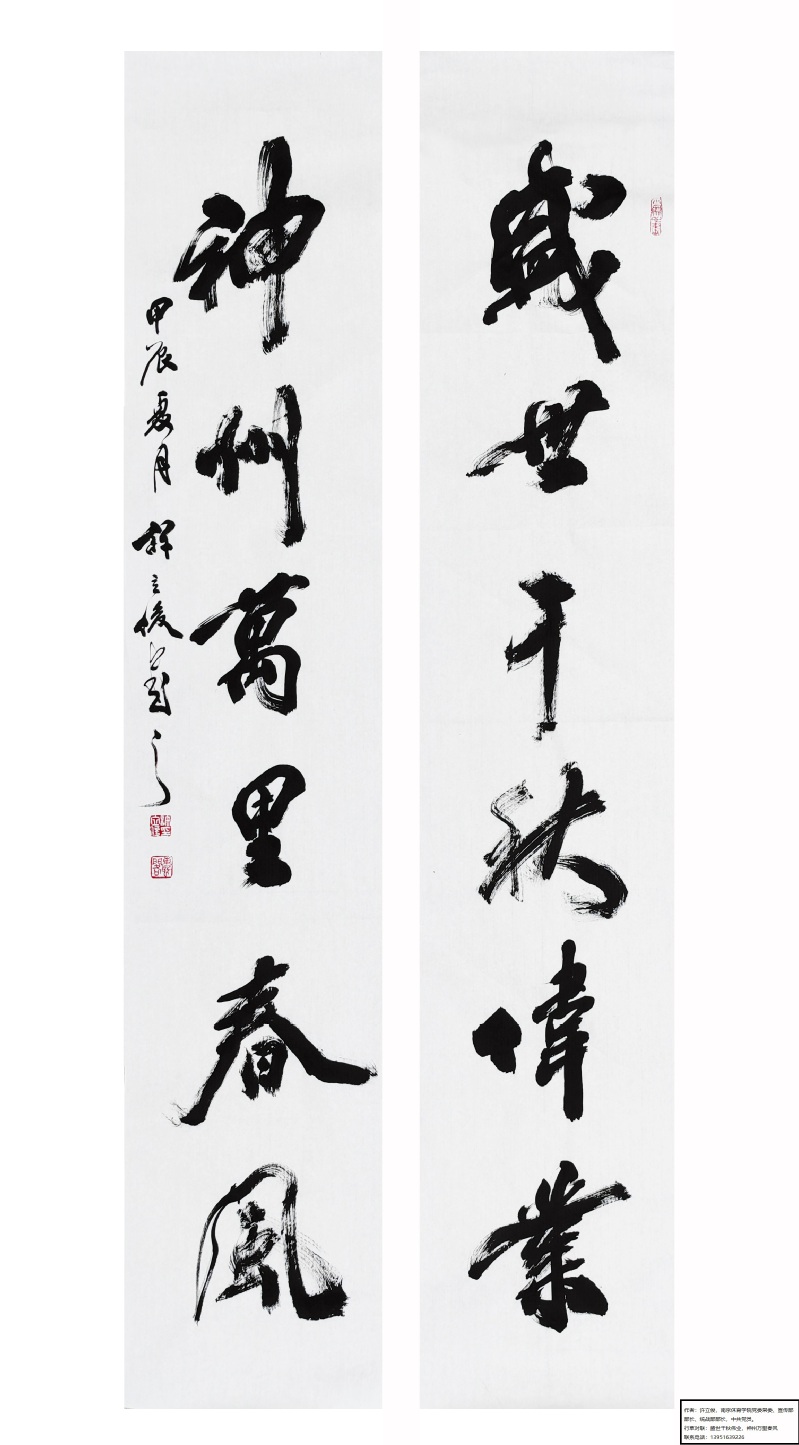 盛世千秋偉業
神州萬里春風
甲辰夏月 許立俊書
作者：许立俊，南京体育学院党委常委、宣传部
部长、统战部部长，中共党员。
行草对联：盛世千秋伟业，神州万里春风
联系电话：13951639226